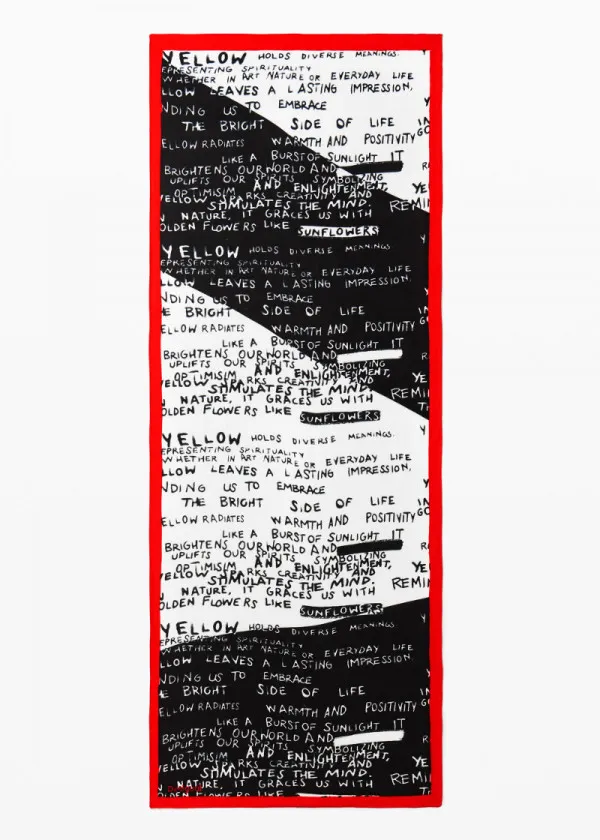 YELLOW HOLDS DIVERSE MEANINGS.
EPRESENTING SPIRITUALITY
WHETHER IN ART NATURE OR EVERYDAY LIFE
LLOW LEAVES A LASTING IMPRESSION,
NDING US TO EMBRACE Y
THE BRIGHT SIDE OF LIFE IN
ELLOW RADIATES WARMTH AND POSITIVITY GO
LIKE A BURST OF SUNLIGHT IT
BRIGHTENS OUR WORLD AND R
UPLIFTS OUR SPIRITS SYMBOLIZING
OPTIMISIM AND ENLIGHTENMENT, YE
YELLOW SPARKS CREATIVITY AND
STIMULATES THE MIND. REMI
N NATURE, IT GRACES US WITH
OLDEN FLOWERS LIKE SUNFLOWERS
YELLOW HOLDS DIVERSE MEANINGS. Y
EPRESENTING SPIRITUALITY
WHETHER IN ART NATURE OR EVERYDAY LIFE
LLOW LEAVES A LASTING IMPRESSION,
NDING US TO EMBRACE
E BRIGHT SIDE OF LIFE
ELLOW RADIATES WARMTH AND POSITIVITY G
LIKE A BURST OF SUNLIGHT IT
BRIGHTENS OUR WORLD AND R
UPLIFTS OUR SPIRITS SYMBOLIZING
OPTIMISIM AND ENLIGHTENMENT, YE
YELLOW SPARKS CREATIVITY AND
STIMULATES THE MIND. REMI
N NATURE, IT GRACES US WITH
OLDEN FLOWERS LIKE SUNFLOWERS
YELLOW HOLDS DIVERSE MEANINGS. Y
EPRESENTING SPIRITUALITY
WHETHER IN ART NATURE OR EVERYDAY LIFE
LLOW LEAVES A LASTING IMPRESSION,
NDING US TO EMBRACE Y
THE BRIGHT SIDE OF LIFE IN
ELLOW RADIATES WARMTH AND POSITIVITY GO
LIKE A BURST OF SUNLIGHT IT
BRIGHTENS OUR WORLD AND R
UPLIFTS OUR SPIRITS SYMBOLIZING
OPTIMISIM AND ENLIGHTENMENT, YE
YELLOW SPARKS CREATIVITY AND
STIMULATES THE MIND. REMI
N NATURE, IT GRACES US WITH
OLDEN FLOWERS LIKE SUNFLOWERS
YELLOW HOLDS DIVERSE MEANINGS. Y
EPRESENTING SPIRITUALITY
WHETHER IN ART NATURE OR EVERYDAY LIFE
LLOW LEAVES A LASTING IMPRESSION,
NDING US TO EMBRACE
E BRIGHT SIDE OF LIFE
ELLOW RADIATES WARMTH AND POSITIVITY G
LIKE A BURST OF SUNLIGHT IT
BRIGHTENS OUR WORLD AND R
UPLIFTS OUR SPIRITS SYMBOLIZING
OPTIMISIM AND ENLIGHTENMENT, YE
YELLOW SPARKS CREATIVITY AND
STIMULATES THE MIND. REMI
N NATURE, IT GRACES US WITH
OLDEN FLOWERS LIKE